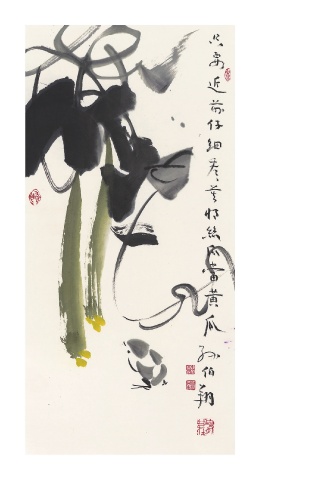 只要近前仔细看 莫将丝瓜当黄瓜 孙伯翔